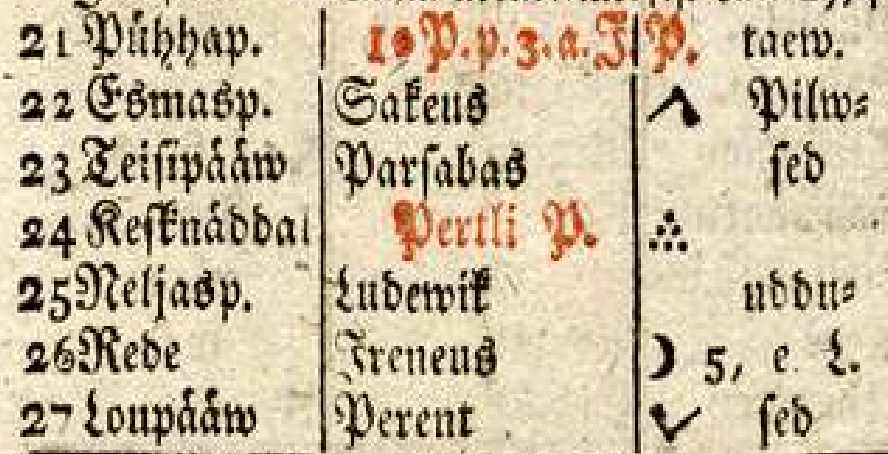 21 Pühhap. 10 P. p. 3. a. J. P. taew.
22 Esmasp. Sakeus Pilw⸗
23 Teisipääw Parsabas sed
24 Kesknäddal Pertli P.
25 Neljasp. Ludewik uddu⸗
26 Rede Ireneus ☽ 5, e. L.
27 Loupääw Perent sed